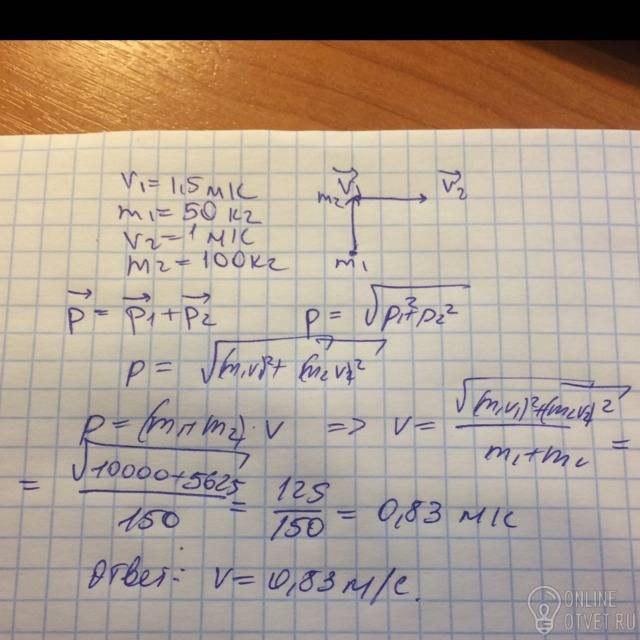 v₁ = 1,5 м/с
m₁ = 50 кг
v₂ = 1 м/с
m₂ = 100 кг
v⃗₁
m₂
v⃗₂
m₁
p⃗ = p⃗₁ + p⃗₂ p = √(p₁² + p₂²)
p = √((m₁v₁)² + (m₂v₂)²)
p = (m₁ + m₂) · v => v = √((m₁v₁)² + (m₂v₂)²) / (m₁ + m₂) =
= √(10000 + 5625) / 150 = 125/150 = 0,83 м/с
Ответ: v = 0,83 м/с.
ONLINE
OTVET.RU